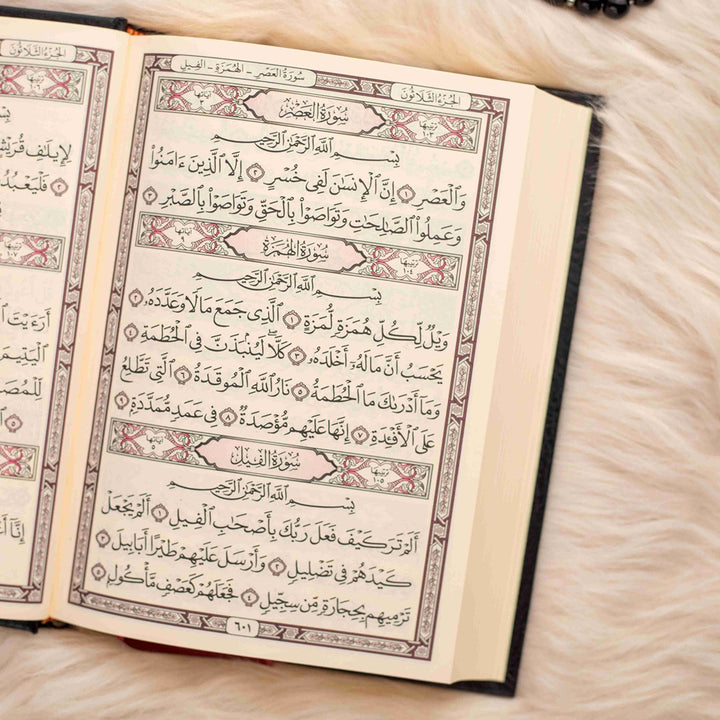 الجُزءُ الثَّلَاثُونَ سُورَةُ العَصْرِ - الهُمَزَةِ - الفِيلِ
تَرتيبُهَا ١٠٣ سُورَةُ العَصْرِ آيَاتُهَا ٣
بِسْمِ ٱللَّهِ ٱلرَّحْمَٰنِ ٱلرَّحِيمِ
وَٱلْعَصْرِ ١ إِنَّ ٱلْإِنسَٰنَ لَفِى خُسْرٍ ٢ إِلَّا ٱلَّذِينَ ءَامَنُوا۟
وَعَمِلُوا۟ ٱلصَّٰلِحَٰتِ وَتَوَاصَوْا۟ بِٱلْحَقِّ وَتَوَاصَوْا۟ بِٱلصَّبْرِ ٣
تَرتيبُهَا ١٠٤ سُورَةُ الهُمَزَةِ آيَاتُهَا ٩
بِسْمِ ٱللَّهِ ٱلرَّحْمَٰنِ ٱلرَّحِيمِ
وَيْلٌ لِّكُلِّ هُمَزَةٍ لُّمَزَةٍ ١ ٱلَّذِى جَمَعَ مَالًا وَعَدَّدَهُۥ ٢
يَحْسَبُ أَنَّ مَالَهُۥٓ أَخْلَدَهُۥ ٣ كَلَّا ۖ لَيُنۢبَذَنَّ فِى ٱلْحُطَمَةِ ٤
وَمَآ أَدْرَىٰكَ مَا ٱلْحُطَمَةُ ٥ نَارُ ٱللَّهِ ٱلْمُوقَدَةُ ٦ ٱلَّتِى تَطَّلِعُ
عَلَى ٱلْأَفْـِٔدَةِ ٧ إِنَّهَا عَلَيْهِم مُّؤْصَدَةٌ ٨ فِى عَمَدٍ مُّمَدَّدَةٍۭ ٩
تَرتيبُهَا ١٠٥ سُورَةُ الفِيلِ آيَاتُهَا ٥
بِسْمِ ٱللَّهِ ٱلرَّحْمَٰنِ ٱلرَّحِيمِ
أَلَمْ تَرَ كَيْفَ فَعَلَ رَبُّكَ بِأَصْحَٰبِ ٱلْفِيلِ ١ أَلَمْ يَجْعَلْ
كَيْدَهُمْ فِى تَضْلِيلٍ ٢ وَأَرْسَلَ عَلَيْهِمْ طَيْرًا أَبَابِيلَ ٣
تَرْمِيهِم بِحِجَارَةٍ مِّن سِجِّيلٍ ٤ فَجَعَلَهُمْ كَعَصْفٍ مَّأْكُولٍۭ ٥
٦٠١
الجُزءُ الثَّلَاثُونَ
تَرتيبُهَا ١٠٦
لِإِيلَٰفِ قُرَيْشٍ
تَرتيبُهَا ١٠٧
أَرَءَيْتَ
ٱلْيَتِيمَ